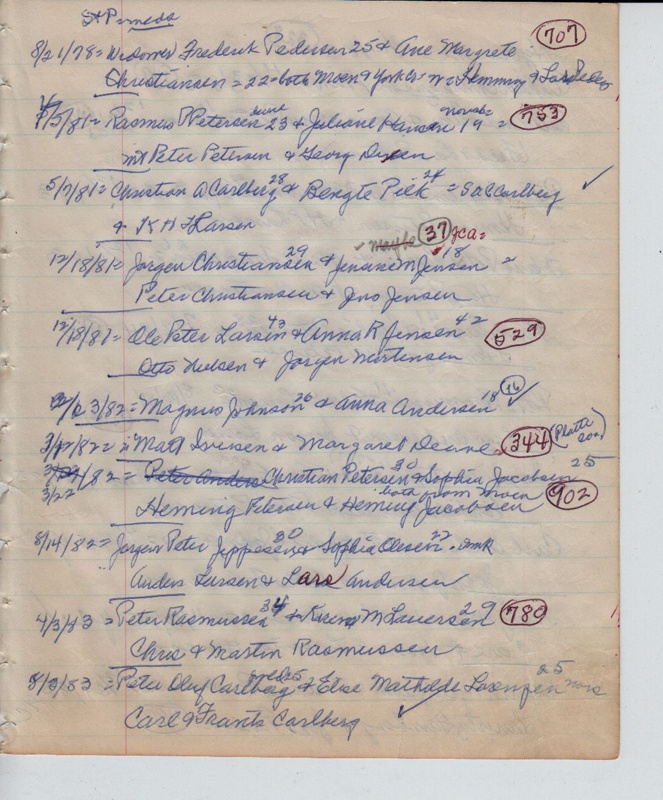 St P meds
707
8/21/78 = Widower Frederik Pedersen 25 & Ane Margrete
Christiansen = 22 = both Moen & York Co = & Lars Peders
7/5/81 = Rasmus Petersen 23 & Juliane Hansen 19 = 753
Peter Petersen & Georg
5/7/81 = Christian A Carlberg 28 & Bengte Pihl 24 = Carlberg ✓
& K H Larsen
✓ maybe 37 Jca =
12/18/81 = Jorgen Christiansen 29 & M Jensen 18 =
Peter Christiansen & Jens Jensen
12/18/81 = Ole Peter Larsen 43 & Anna R Jensen 42 529
Otto Nielsen & Jorgen Mortensen
3/82 = Magnus Johnson 26 & Anna Andersen 18 16 ✓
3/17/82 = Matt Iversen & Margaret 344 (Platte Co)
3/22/82 = Peter Anders Christian Petersen 30 & Sophia Jacobsen 25
both from Moen
Heming Petersen & Heming Jacobsen 902
8/14/82 = Jorgen Peter Jeppesen 30 & Sophia Olesen 22
Anders Larsen & Lars Andersen
4/3/83 = Peter Rasmussen 34 & Karen M Laursen 29 780
Chris & Martin Rasmussen
8/8/83 = Peter Oluf Carlberg & Else Mathilde 25
Carl & Frants Carlberg ✓